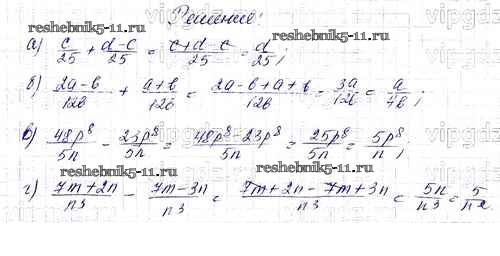 Решение:
reshebnik5-11.ru
а) c/25 + d-c/25 = c+d-c/25 = d/25; reshebnik5-11.ru
б) 2a-b/12b + a+b/12b = 2a-b+a+b/12b = 3a/12b = a/4b;
в) 48p⁸/5n - 23p⁸/5n = 48p⁸-23p⁸/5n = 25p⁸/5n = 5p⁸/n;
reshebnik5-11.ru
reshebnik5-11.ru
г) 7m+2n/n3 - 7m-3n/n3 = 7m+2n-7m+3n/n3 = 5n/n3 = 5/n2